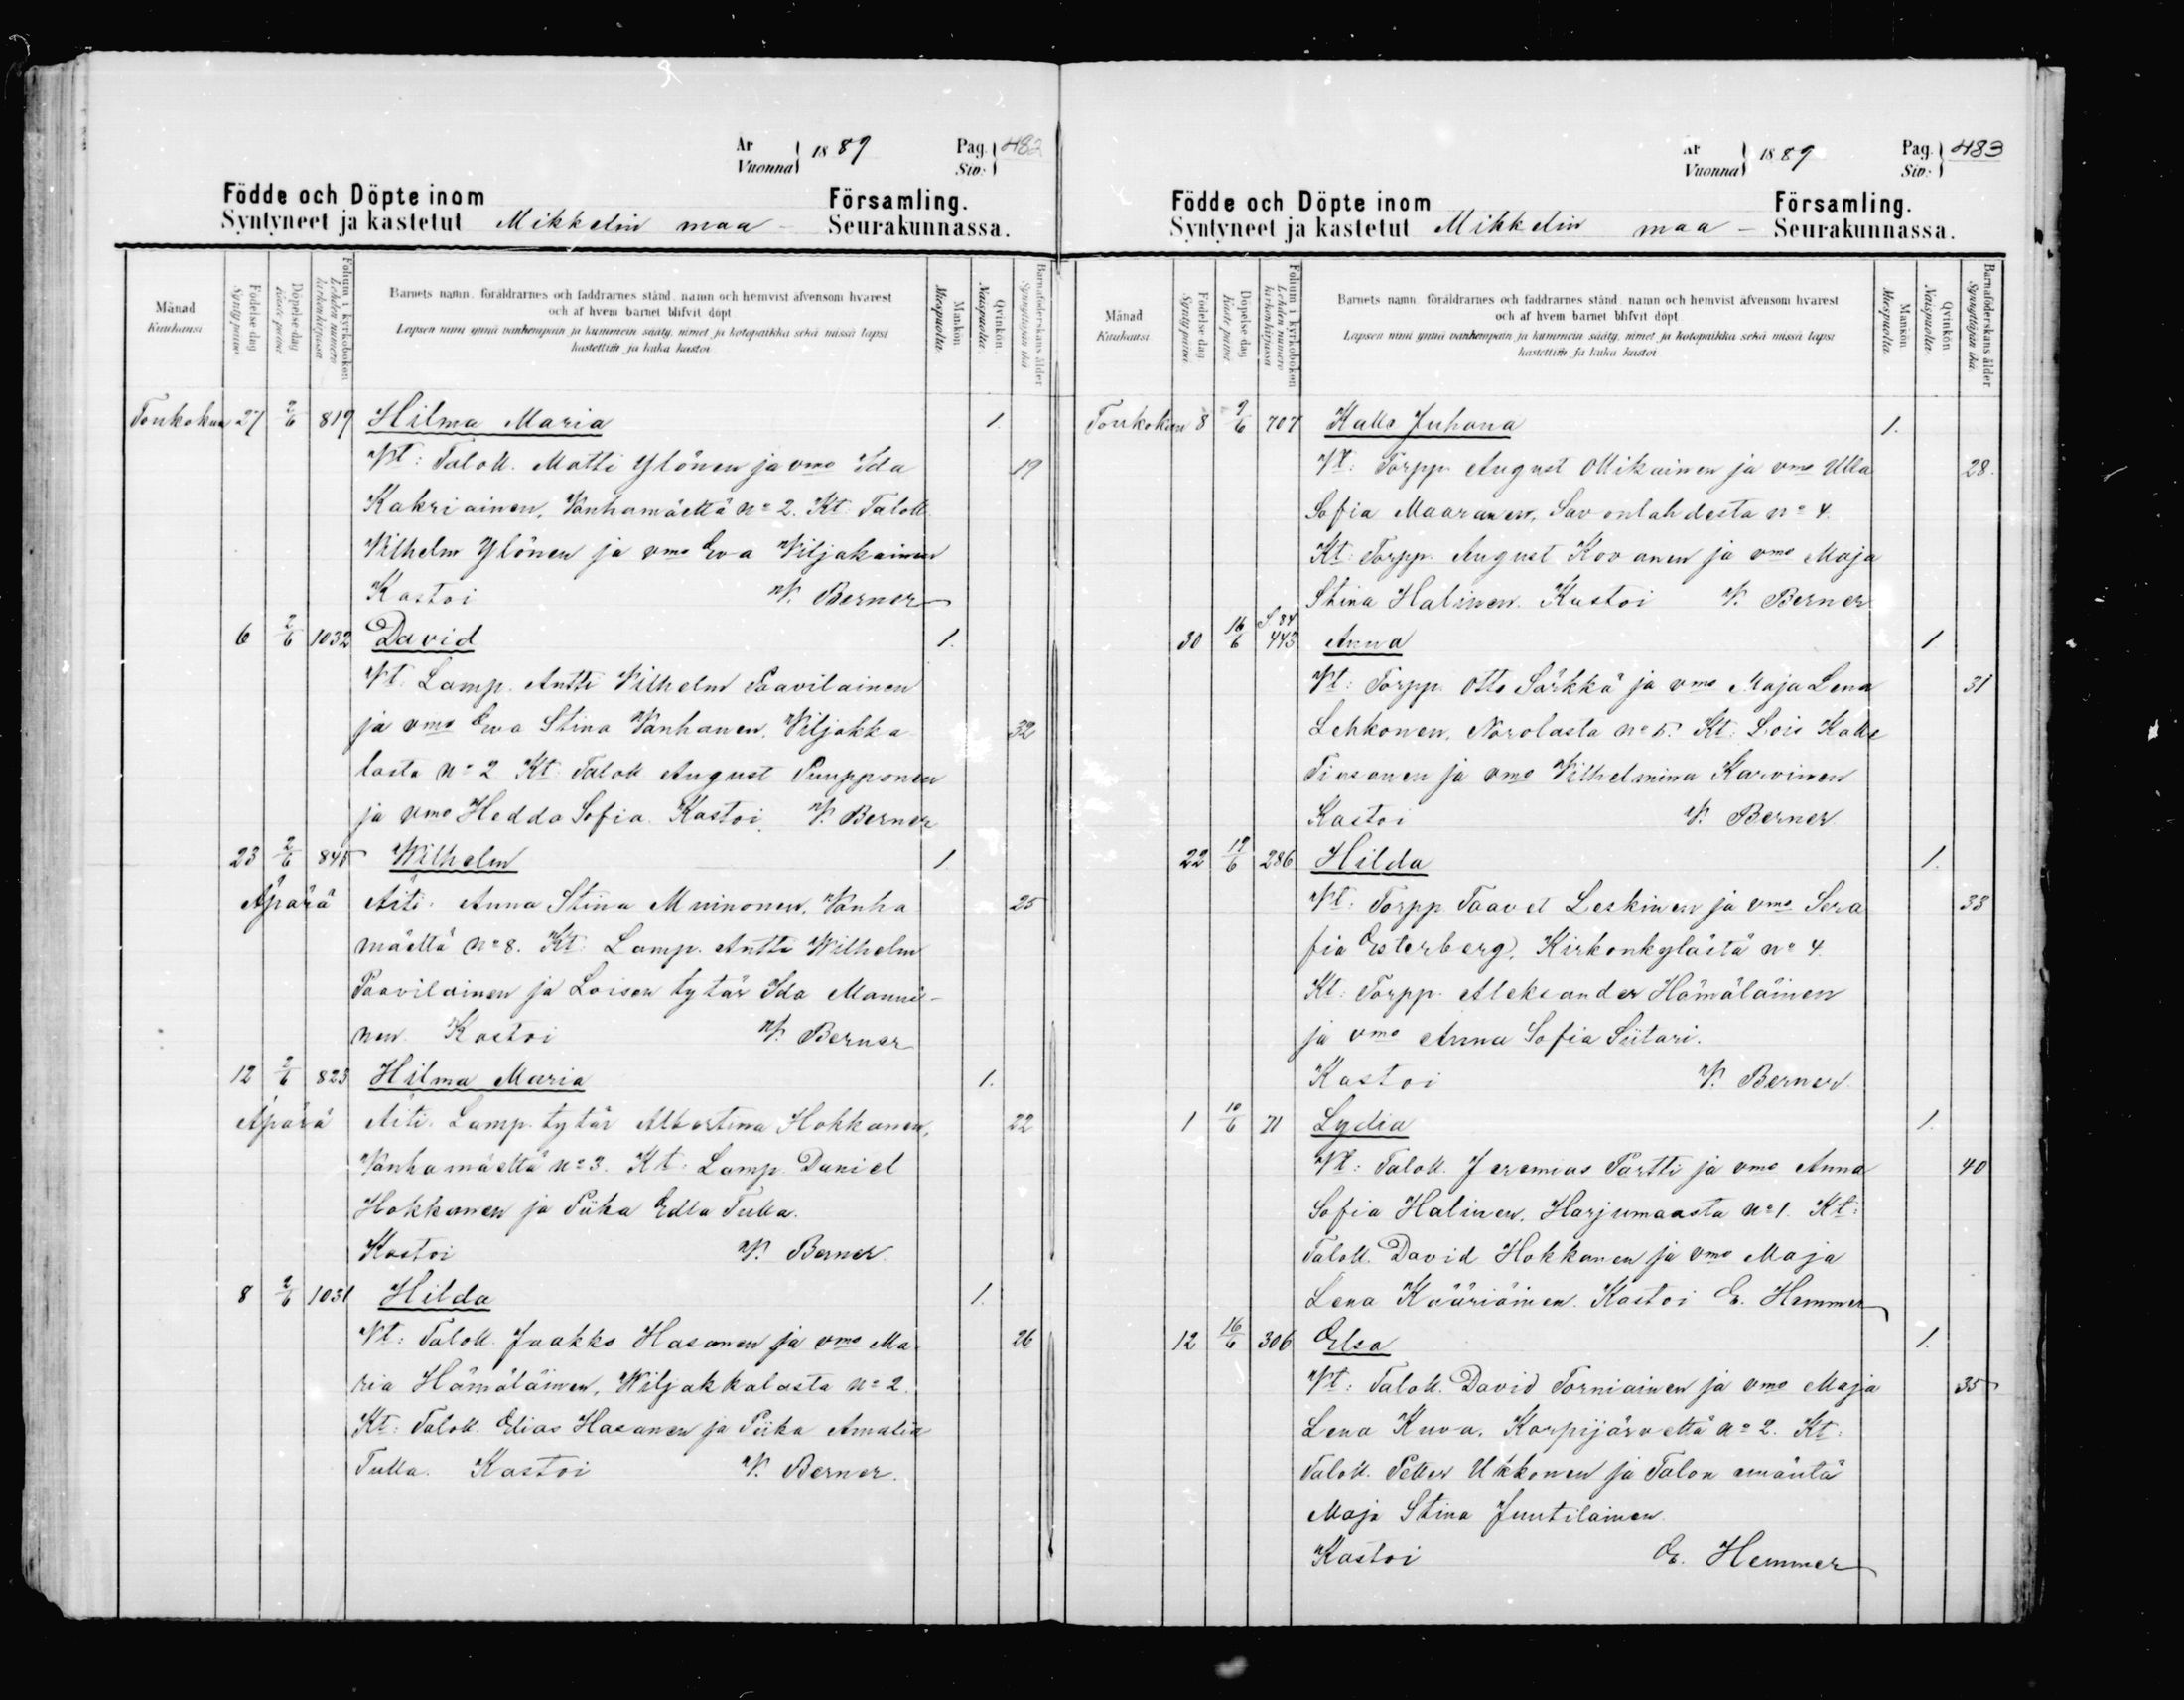 År Vuonna 1889 Pag. Siv: 482
Födde och Döpte inom Församling.
Syntyneet ja kastetut Mikkelin maa - Seurakunnassa.
Månad Kuukausi
Födelse-dag Synty-päivä
Döpelse-dag Kaste-päivä
Folium i kyrkoboken Lehden numero kirkonkirjassa
Barnets namn, föräldrarnes och faddrarnes stånd, namn och hemvist äfvensom hvarest
och af hvem barnet blifvit döpt
Lapsen nimi ynnä vanhempain ja kummein sääty, nimet ja kotopaikka sekä missä lapsi
kastettiin ja kuka kastoi
Mankön Miespuolta.
Qvinkön. Naispuolta.
Barnaföderskans ålder Synnyttäjän ikä
Toukokuu 27 2/6 819 Hilma Maria 1.
Vt: Taloll. Matti Ylönen ja vmo Ida 19
Kakriainen, Vanhamäeltä No 2. Kt: Taloll.
Vilhelm Ylönen ja vmo Eva Viljakainen
Kastoi V. Berner
6 2/6 1032 David 1.
Vt: Lamp. Antti Vilhelm Paavilainen
ja vmo Eva Stina Vanhanen, Viljakka- 32
lasta No 2 Kt: Taloll August Pumpponen
ja vmo Hedda Sofia. Kastoi V. Berner
23 2/6 845 Wilhelm 1.
Äpärä Äiti: Anna Stiina Muinonen, Vanha 25
mäeltä No 8. Kt: Lamp. Antti Wilhelm
Paavilainen ja Loisen tytär Ida Manni-
nen. Kastoi V. Berner
12 2/6 823 Hilma Maria 1.
Äpärä Äiti: Lamp. tytär Albertina Hokkanen, 22
Vanhamäeltä No 3. Kt: Lamp. Daniel
Hokkanen ja Piika Edla Tulla.
Kastoi V. Berner.
8 2/6 1031 Hilda 1.
Vt: Taloll. Jaakko Hasanen ja vmo Ma- 26
ria Hämäläinen, Wiljakkalasta No 2.
Kt: Taloll. Elias Hasanen ja Piika Amalia
Tulla. Kastoi V. Berner.
År Vuonna 1889 Pag. Siv: 483
Födde och Döpte inom Församling.
Syntyneet ja kastetut Mikkelin maa - Seurakunnassa.
Månad Kuukausi
Födelse-dag Synty-päivä
Döpelse-dag Kaste-päivä
Folium i kyrkoboken Lehden numero kirkonkirjassa
Barnets namn, föräldrarnes och faddrarnes stånd, namn och hemvist äfvensom hvarest
och af hvem barnet blifvit döpt
Lapsen nimi ynnä vanhempain ja kummein sääty, nimet ja kotopaikka sekä missä lapsi
kastettiin ja kuka kastoi
Mankön Miespuolta.
Qvinkön Naispuolta.
Barnaföderskans ålder Synnyttäjän ikä.
Toukokuu 8 9/6 707 Kalle Juhana 1.
Vt: Torpp. August Ollikainen ja vmo Ulla 28.
Sofia Maaranen, Savonlahdesta No 4.
Kt: Torpp. August Kovanen ja vmo Maja
Stina Halinen. Kastoi V. Berner
30 16/6 S 84 443 Anna 1
Vt: Torpp. Otto Särkkä ja vmo Maja Lena 31
Lehkonen, Norolasta No 5. Kt: Lois Kalle
Tiusanen ja vmo Vilhelmina Karvinen
Kastoi V. Berner
22 19/6 286 Hilda 1.
Vt: Torpp. Taavet Leskinen ja vmo Sera 33
fia Esterberg, Kirkonkylästä No 4.
Kt: Torpp. Aleksander Hämäläinen
ja vmo Anna Sofia Siitari.
Kastoi V. Berner.
1 10/6 71 Lydia 1.
Vt: Taloll. Jeremias Partti ja vmo Anna 40
Sofia Halinen, Harjumaasta No 1. Kt:
Taloll. David Hokkanen ja vmo Maja
Lena Kääriäinen. Kastoi E. Hemmer
12 16/6 306 Elsa 1.
Vt: Taloll. David Torniainen ja vmo Maja 35
Lena Kuva, Korpijärveltä No 2. Kt:
Taloll. Petter Ukkonen ja Talon emäntä
Maja Stina Juutilainen.
Kastoi E. Hemmer